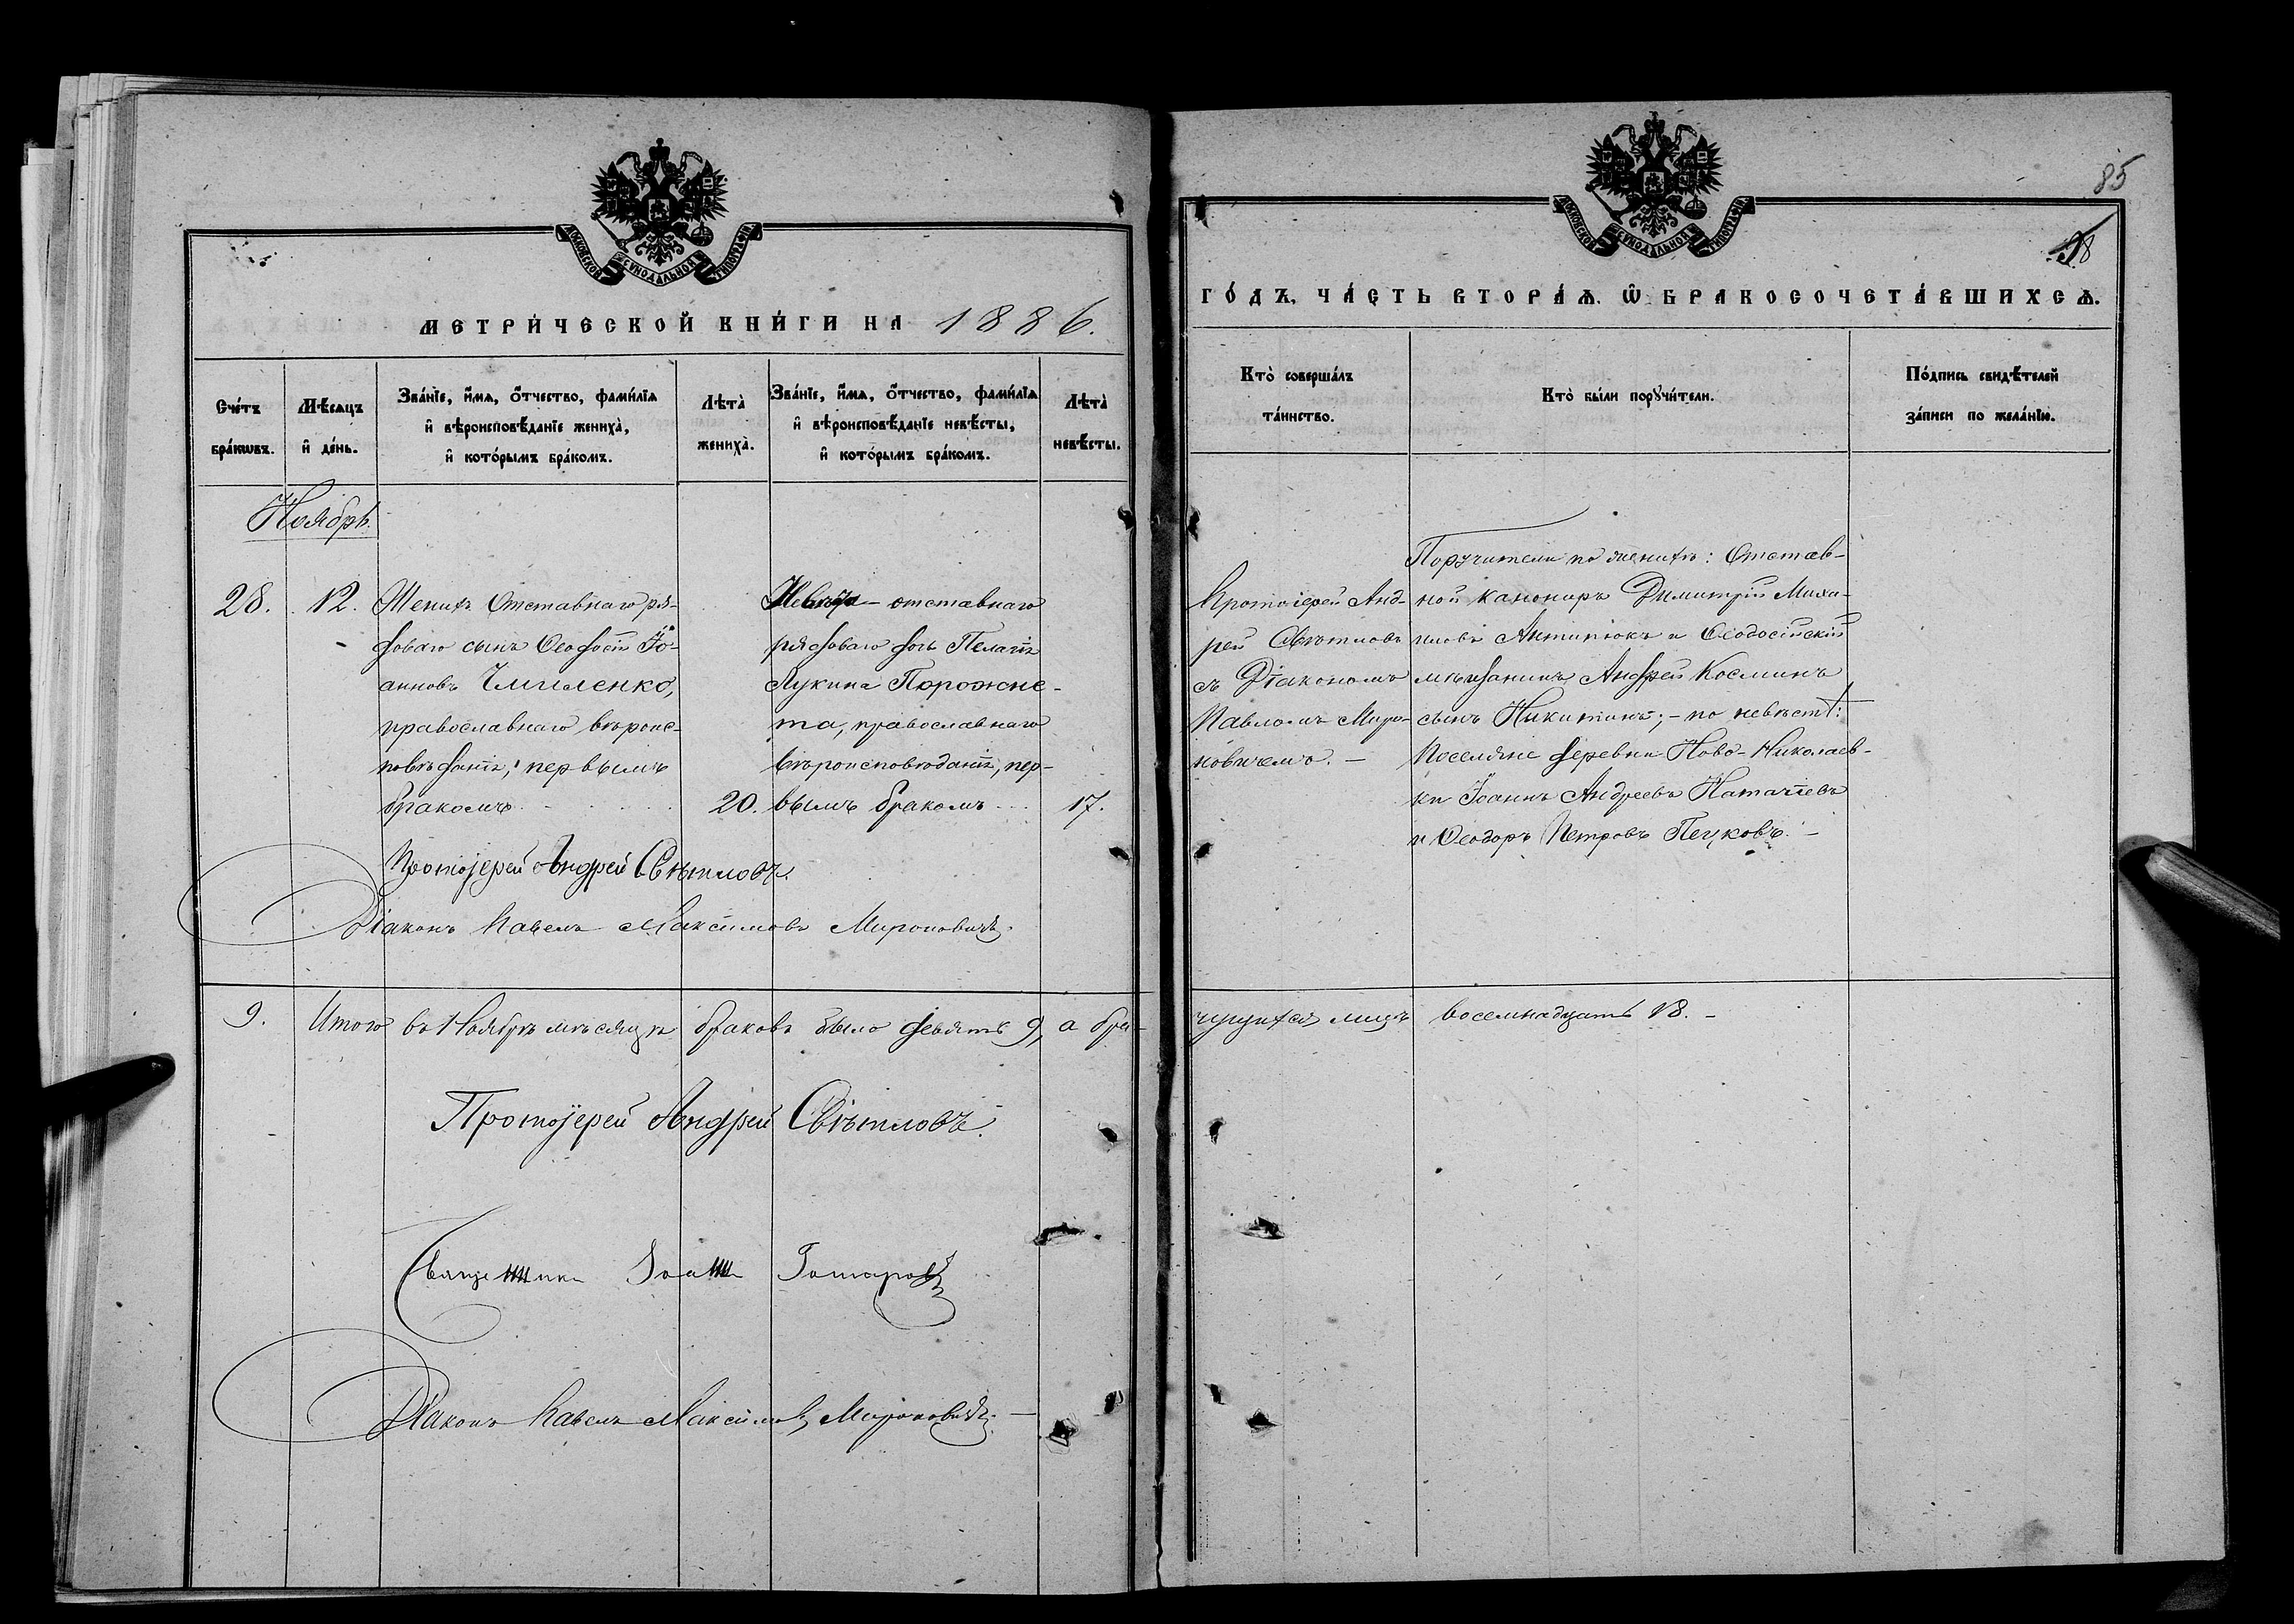 МОСКОВСКОЙ СѴНОДАЛЬНОЙ ТИПОГРАФІИ
МЕТРИ́ЧЕСКОЙ КНИ́ГИ НА 1886.
Сче́тъ бра́кѡвъ.
Мѣ́сяцъ и҆ де́нь.
Зва́нїе, и҆́мѧ, ѻ҆́тчество, фами́лїѧ
и҆ вѣроисповѣ́данїе жениха̀,
и҆ кото́рымъ бра́комъ.
Лѣта̀ жениха̀.
Зва́нїе, и҆́мѧ, ѻ҆́тчество, фами́лїѧ
и҆ вѣроисповѣ́данїе невѣ́сты,
и҆ кото́рымъ бра́комъ.
Лѣта̀ невѣ́сты.
Ноябрь.
28.
12.
Женихъ Отставнаго ря-
доваго сынъ Ѳеодосій Іо-
анновъ Чмиленко,
православнаго вѣроис-
повѣданія, первымъ
бракомъ
20.
Невѣста – отставнаго
рядоваго дочь Пелагія
Лукина Порожне-
та, православнаго
вѣроисповѣданія, пер-
вымъ бракомъ
17.
Протоіерей Андрей Свѣтловъ.
Діаконъ Павелъ Максимовъ Мироновичъ.
9. Итого въ Ноябрѣ мѣсяцѣ браковъ было девять 9, а бра-
Протоіерей Андрей Свѣтловъ.
Священникъ Іоаннъ
Діаконъ Павелъ Максимовъ Мироновичъ. –
85
МОСКОВСКОЙ СѴНОДАЛЬНОЙ ТИПОГРАФІИ
98
ГО́ДЪ, ЧА́СТЬ ВТОРА́Ѧ, Ѡ҆ БРАКОСОЧЕТА́ВШИХСѦ.
Кто̀ соверша́лъ
та́инство.
Кто̀ бы́ли порꙋчи́тели.
По́дпись свидѣ́телей
за́писи по жела́нїю.
Протоіерей Анд-
рей Свѣтловъ
съ Діакономъ
Павломъ Миро-
новичемъ. –
Поручители по женихѣ: Отстав-
ной канониръ Димитрій Миха-
иловъ Антипюкъ и Ѳеодосійскій
мѣщанинъ Андрей Косминъ
сынъ Никитинъ; – по невѣстѣ:
поселяне деревни Ново-Николаев-
ки Іоаннъ Андреевъ Натачіевъ
и Ѳеодоръ Петровъ Пецковъ. –
чущихся лицъ восемнадцать 18. –